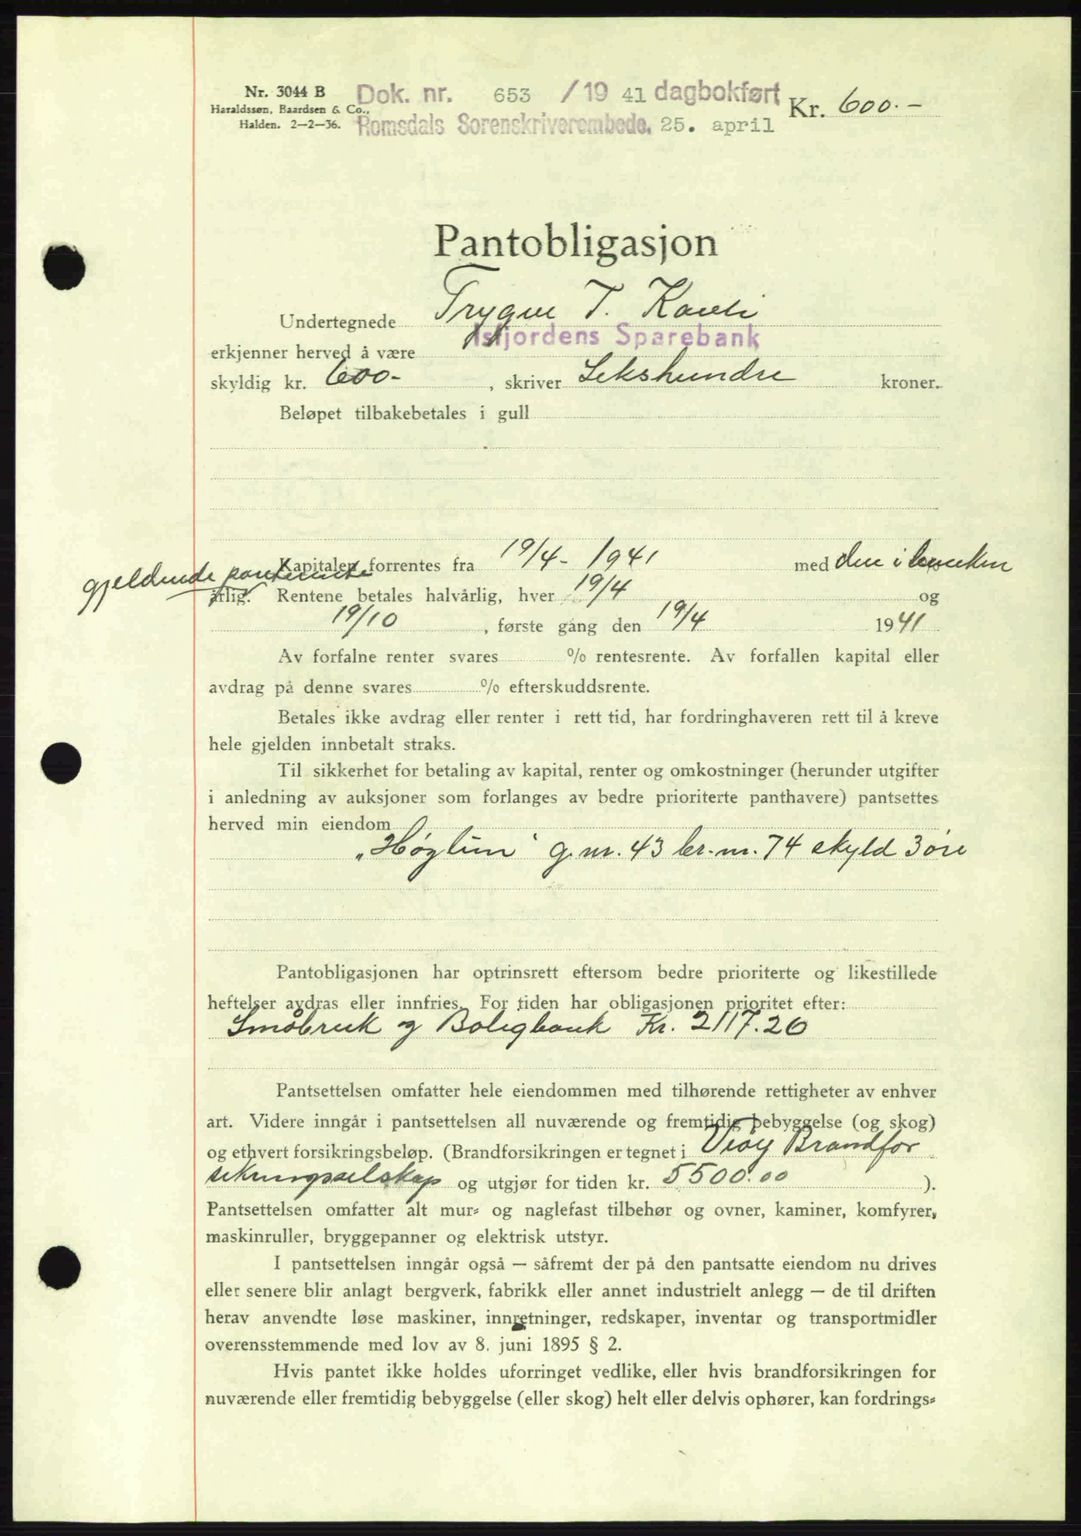 Nr. 3044 B
Haraldssøn, Baardsen & Co.,
Halden. 2-2-36.
Dok. nr. 653 /19 41 dagbokført
Romsdals Sorenskriverembede, 25. april
Kr. 600.-
Pantobligasjon
Undertegnede Trygve T. Kavli
Isfjordens Sparebank
erkjenner herved å være
skyldig kr. 600- , skriver Sekshundre kroner.
Beløpet tilbakebetales i gull
Kapitalen forrentes fra 19/4- 1941 med den i banken
gjeldende panterente
årlig. Rentene betales halvårlig, hver 19/4 og
19/10 , første gang den 19/4 1941
Av forfalne renter svares % rentesrente. Av forfallen kapital eller
avdrag på denne svares % efterskuddsrente.
Betales ikke avdrag eller renter i rett tid, har fordringhaveren rett til å kreve
hele gjelden innbetalt straks.
Til sikkerhet for betaling av kapital, renter og omkostninger (herunder utgifter
i anledning av auksjoner som forlanges av bedre prioriterte panthavere) pantsettes
herved min eiendom
„Høglun“ g.nr. 43 br.nr. 74 skyld 3 øre
Pantobligasjonen har optrinsrett eftersom bedre prioriterte og likestillede
heftelser avdras eller innfries. For tiden har obligasjonen prioritet efter:
Småbruk og Boligbank Kr. 2117.20
Pantsettelsen omfatter hele eiendommen med tilhørende rettigheter av enhver
art. Videre inngår i pantsettelsen all nuværende og fremtidig bebyggelse (og skog)
og ethvert forsikringsbeløp. (Brandforsikringen er tegnet i Veøy Brandfor
sikringsselskap og utgjør for tiden kr. 5500.00 ).
Pantsettelsen omfatter alt mur- og naglefast tilbehør og ovner, kaminer, komfyrer,
maskinruller, bryggepanner og elektrisk utstyr.
I pantsettelsen inngår også — såfremt der på den pantsatte eiendom nu drives
eller senere blir anlagt bergverk, fabrikk eller annet industrielt anlegg — de til driften
herav anvendte løse maskiner, innretninger, redskaper, inventar og transportmidler
overensstemmende med lov av 8. juni 1895 § 2.
Hvis pantet ikke holdes uforringet vedlike, eller hvis brandforsikringen for
nuværende eller fremtidig bebyggelse (eller skog) helt eller delvis ophører, kan fordrings-